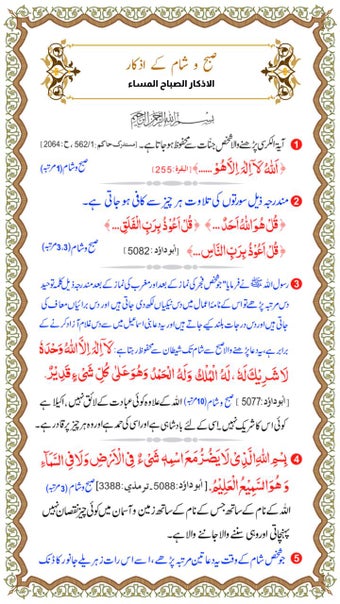 صبح و شام کے اذکار
الاذكار الصباح المساء
بسم الله الرحمن الرحيم
1 آیۃ الکرسی پڑھنے والا شخص جنات سے محفوظ ہو جاتا ہے۔ [مستدرک حاکم: 562/1، ح: 2064]
﴿اَللّٰهُ لَآ اِلٰهَ اِلَّا هُوَ ......﴾ [البقرة: 255] صبح و شام (1 مرتبہ)
2 مندرجہ ذیل سورتوں کی تلاوت ہر چیز سے کافی ہو جاتی ہے۔
﴿قُلْ هُوَ اللّٰهُ اَحَدٌ ...﴾ ﴿قُلْ اَعُوْذُ بِرَبِّ الْفَلَقِ ...﴾
﴿قُلْ اَعُوْذُ بِرَبِّ النَّاسِ ...﴾ [ابوداؤد: 5082] صبح و شام (3،3 مرتبہ)
3 رسول اللہ ﷺ نے فرمایا ”جو شخص فجر کی نماز کے بعد اور مغرب کی نماز کے بعد مندرجہ ذیل کلمہ توحید
دس مرتبہ پڑھے تو اس کے نامۂ اعمال میں دس نیکیاں لکھ دی جاتی ہیں اور دس برائیاں معاف کی
جاتی ہیں اور دس درجات بلند کیے جاتے ہیں اور یہ دعا بنی اسماعیل میں سے دس غلام آزاد کرنے کے
برابر ہے، یہ دعا پڑھنے والا صبح سے شام تک شیطان سے محفوظ رہتا ہے: لَآ اِلٰهَ اِلَّا اللّٰهُ وَحْدَهٗ
لَا شَرِيْكَ لَهٗ، لَهُ الْمُلْكُ وَلَهُ الْحَمْدُ وَهُوَ عَلٰى كُلِّ شَيْءٍ قَدِيْرٌ.
[ابوداؤد: 5077] صبح و شام (10 مرتبہ) اللہ کے علاوہ کوئی عبادت کے لائق نہیں، اکیلا ہے
کوئی اس کا شریک نہیں۔ اسی کے لئے بادشاہی ہے اور اسی کی حمد ہے اور وہ ہر چیز پر قادر ہے۔
4 بِسْمِ اللّٰهِ الَّذِيْ لَا يَضُرُّ مَعَ اسْمِهٖ شَيْءٌ فِي الْاَرْضِ وَلَا فِي السَّمَآءِ
وَهُوَ السَّمِيْعُ الْعَلِيْمُ. [ابوداؤد: 5088، ترمذي: 3388] صبح و شام (3 مرتبہ)
اللہ کے نام کے ساتھ جس کے نام کے ساتھ زمین و آسمان میں کوئی چیز نقصان نہیں
پہنچاتی اور وہی سننے والا جاننے والا ہے۔
5 جو شخص شام کے وقت یہ دعا تین مرتبہ پڑھے، اسے اس رات زہریلے جانور کا ڈنک